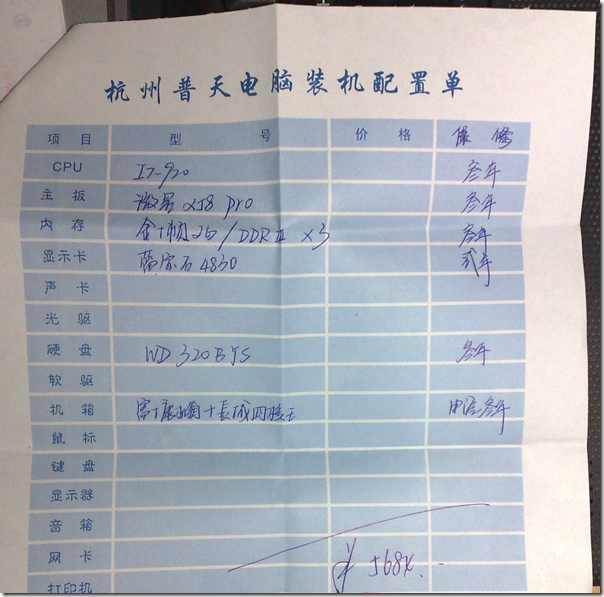 杭州普天电脑装机配置单
项目 型号 价格 保修
CPU I7-920 叁年
主板 微星X58 pro 叁年
内存 金士顿2G/DDRIII X3 叁年
显示卡 蓝宝石4830 贰年
声卡
光驱
硬盘 WD 320BYS 叁年
软驱
机箱 富士康 + 长城四核王 电源叁年
鼠标
键盘
显示器
音箱
网卡 ¥ 568
打印机